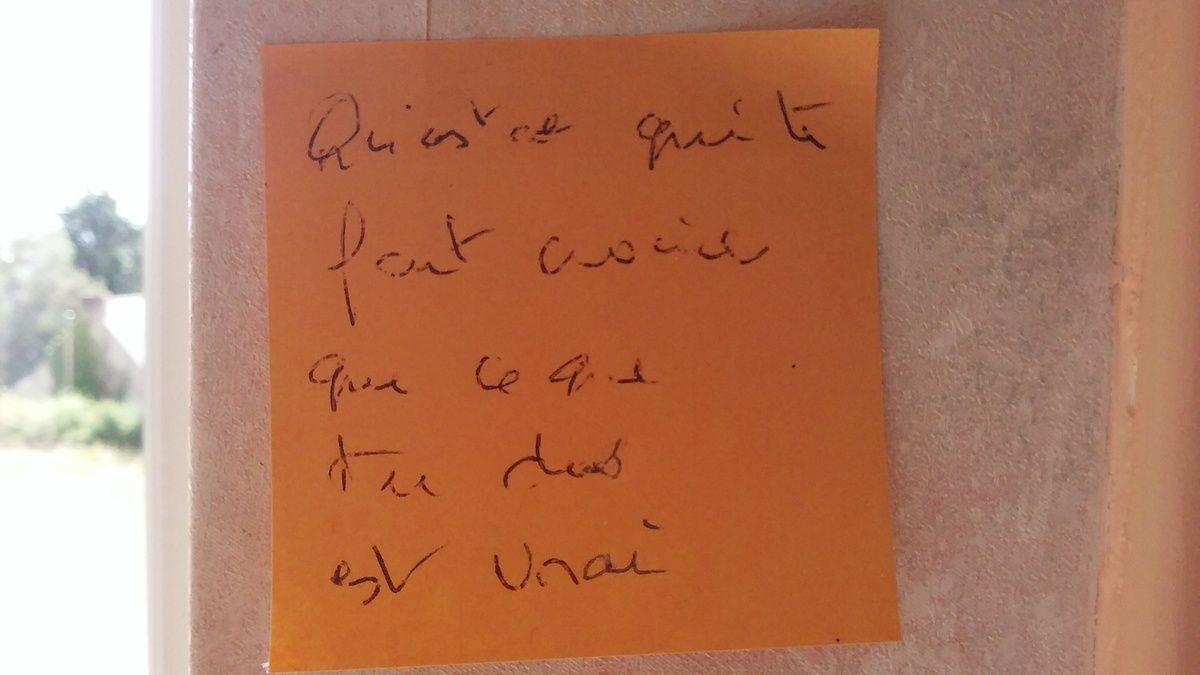 Qu'est ce qui te
fait croire
que ce que
tu dis
est vrai